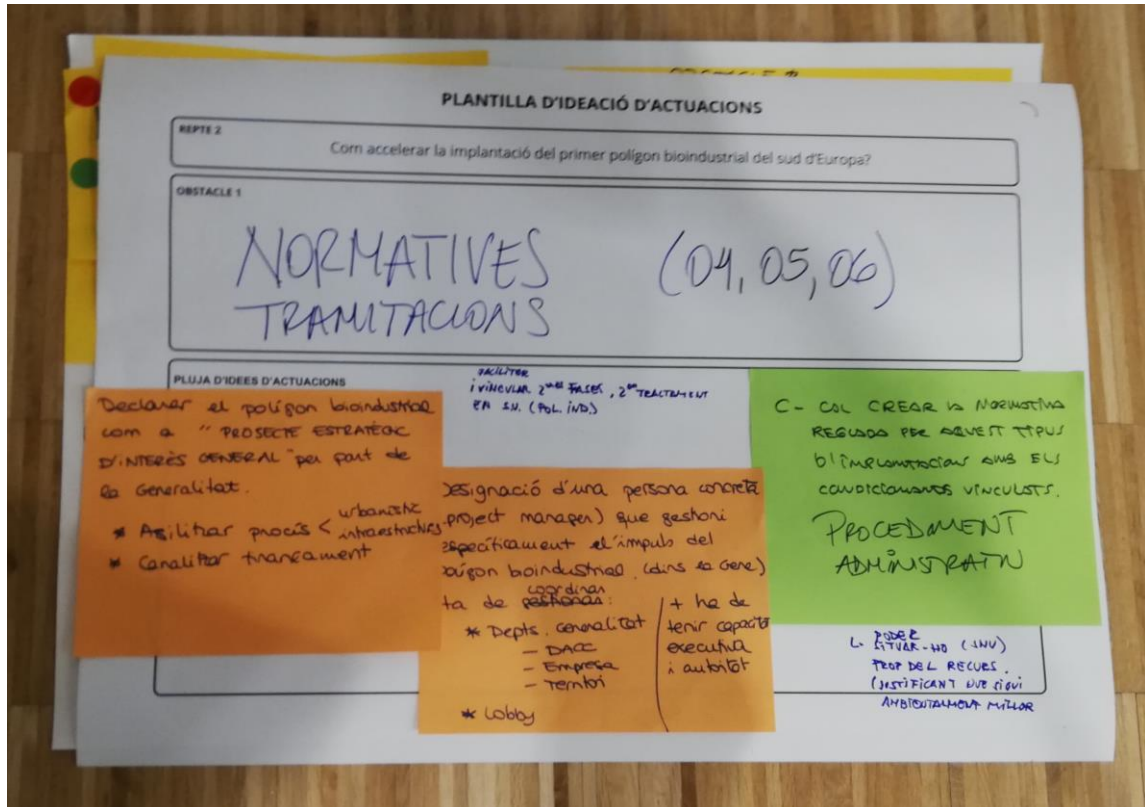 PLANTILLA D'IDEACIÓ D'ACTUACIONS
REPTE 2
Com accelerar la implantació del primer polígon bioindustrial del sud d'Europa?
OBSTACLE 1
NORMATIVES (04, 05, 06)
TRAMITACIONS
PLUJA D'IDEES D'ACTUACIONS
FACILITAR
i VINCULAR 2nes FASES, 2on TRACTAMENT
EN S.N. (POL. IND)
Declarar el polígon bioindustrial
com a "PROJECTE ESTRATÈGIC
D'INTERÈS GENERAL" per part de
la Generalitat.
* Agilitzar procés < urbanístic
infraestructures
* Canalitzar finançament
Designació d'una persona concreta
(project manager) que gestioni
específicament el'impuls del
polígon bioindustrial. (dins la Gene)
coordinar
ta de gestionar:
* Depts. Generalitat
- DACC
- Empresa
- Territori
* Lobby
+ ha de
tenir capacitat
executiva
i autoritat
C- CAL CREAR LA NORMATIVA
REGLADA PER AQUEST TIPUS
D'IMPLANTACIONS AMB ELS
CONDICIONANTS VINCULATS.
PROCEDIMENT
ADMINISTRATIU
PODER
L- SITUAR-HO (SNU)
PROP DEL RECURS.
(JUSTIFICANT QUE SIGUI
AMBIENTALMENT MILLOR